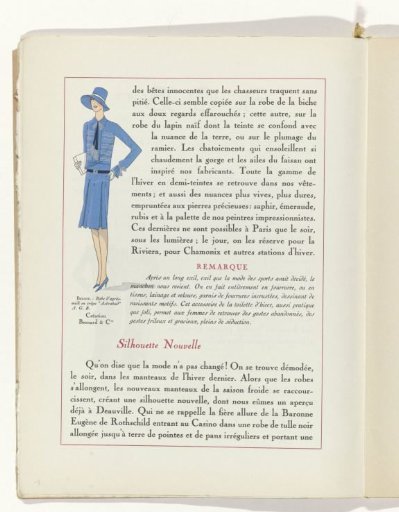 des bêtes innocentes que les chasseurs traquent sans
pitié. Celle-ci semble copiée sur la robe de la biche
aux doux regards effarouchés ; cette autre, sur la
robe du lapin naïf dont la teinte se confond avec
la nuance de la terre, ou sur le plumage du
ramier. Les chatoiements qui ensoleillent si
chaudement la gorge et les ailes du faisan ont
inspiré nos fabricants. Toute la gamme de
l'hiver en demi-teintes se retrouve dans nos vête-
ments ; et aussi des nuances plus vives, plus dures,
empruntées aux pierres précieuses : saphir, émeraude,
rubis et à la palette de nos peintres impressionnistes.
Ces dernières ne sont possibles à Paris que le soir,
sous les lumières ; le jour, on les réserve pour la
Riviera, pour Chamonix et autres stations d'hiver.
REMARQUE
Après un long exil, exil que la mode des sports avait décidé, le
manchon nous revient. On en fait entièrement en fourrure, ou en
tissus, lainage et velours, garnis de fourrures incrustées, dessinant de
ravissants motifs. Cet accessoire de la toilette d'hiver, aussi pratique
que joli, permet aux femmes de retrouver des gestes abandonnés, des
gestes frileux et gracieux, pleins de séduction.
Robe d'après-
midi en crêpe
S. G. B.
Création
Bernard & Cie
Silhouette Nouvelle
Qu'on dise que la mode n'a pas changé ! On se trouve démodée,
le soir, dans les manteaux de l'hiver dernier. Alors que les robes
s'allongent, les nouveaux manteaux de la saison froide se raccour-
cissent, créant une silhouette nouvelle, dont nous eûmes un aperçu
déjà à Deauville. Qui ne se rappelle la fière allure de la Baronne
Eugène de Rothschild entrant au Casino dans une robe de tulle noir
allongée jusqu'à terre de pointes et de pans irréguliers et portant une